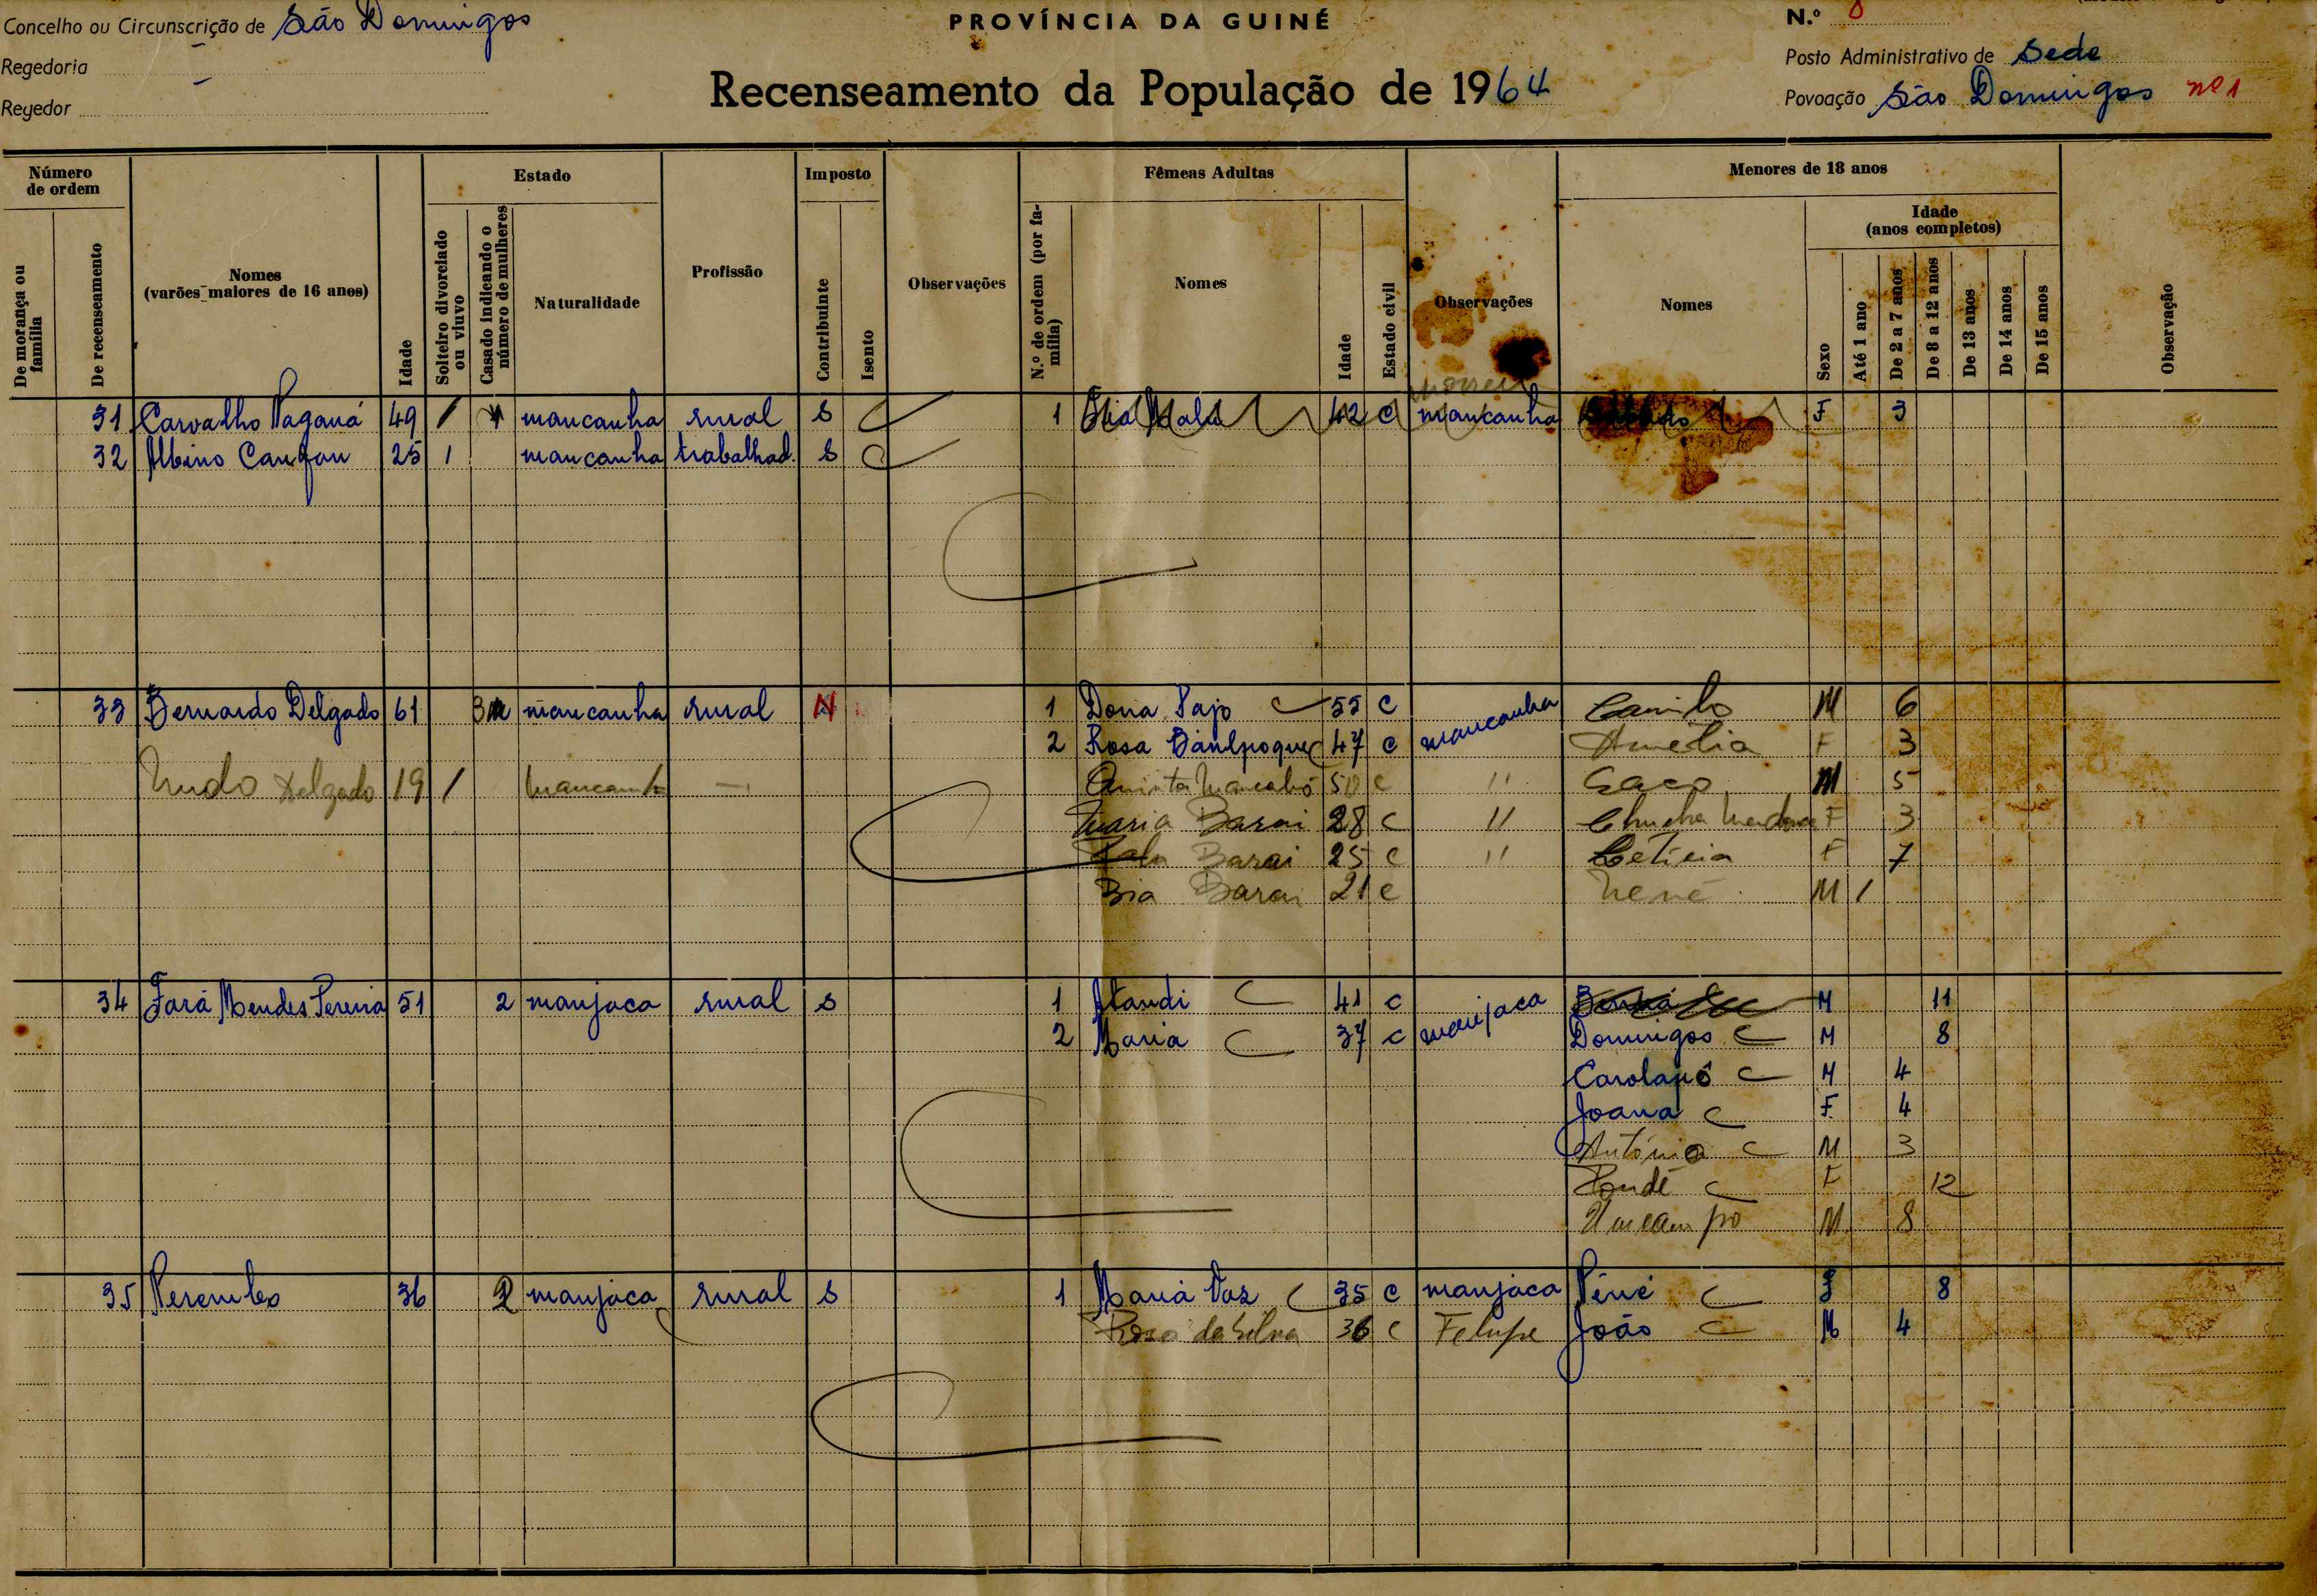 Concelho ou Circunscrição de São Domingos
Regedoria
Regedor
PROVÍNCIA DA GUINÉ
Recenseamento da População de 1964
N.º 8
Posto Administrativo de Sede
Povoação São Domingos nº 1
Número de ordem
De morança ou família
De recenseamento
Nomes
(varões maiores de 16 anos)
Idade
Estado
Solteiro divorciado ou viuvo
Casado indicando o número de mulheres
Naturalidade
Profissão
Imposto
Contribuinte
Isento
Observações
Fêmeas Adultas
N.º de ordem (por família)
Nomes
Idade
Estado civil
Observações
Menores de 18 anos
Nomes
Sexo
Idade
(anos completos)
Até 1 ano
De 2 a 7 anos
De 8 a 12 anos
De 13 anos
De 14 anos
De 15 anos
Observação
31 Carvalho Paganá 49 / mancanha rural S 1 42 C mancanha F 3
32 Albino 25 1 mancanha trabalhad. S
33 Bernardo Delgado 61 3 mancanha rural N 1 Dona Sajo 55 C mancanha Camilo M 6
2 Rosa 47 C Amélia F 3
Delgado 19 / mancanha — 50 C " M 5
Maria Barai 28 C " F 3
Barai 25 C " Letícia F 7
Bia Barai 21 C Nené M /
34 Fará Mendes Pereira 51 2 manjaca rural S 1 Atandi 41 C manjaca M 11
2 Maria 37 C Domingos M 8
M 4
Joana F 4
António M 3
F 12
M 8
35 36 2 manjaca rural S 1 Maria Vaz 35 C manjaca F 8
Rosa da Silva 36 C Felupe João M 4